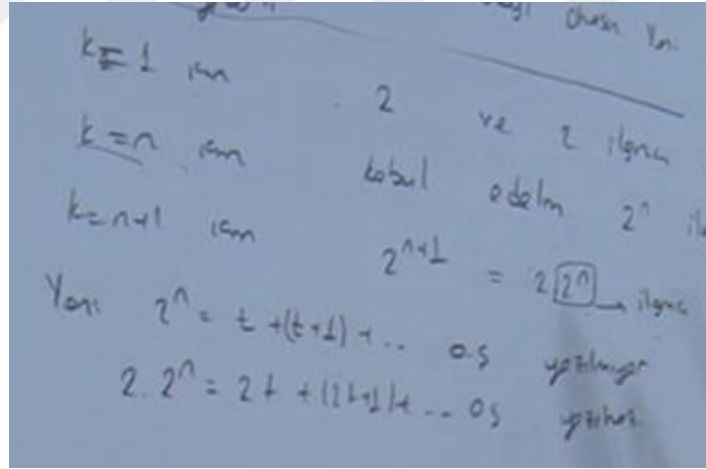 olsun Yani
k=1 için 2 ve 2 ilginç
k=n için kabul edelim 2^n
k=n+1 için 2^{n+1} = 2 2^n → ilginç
Yani 2^n = t + (t+1) + .. o.ş yazılmıyor
2. 2^n = 2t + (2t+1) + ... oş